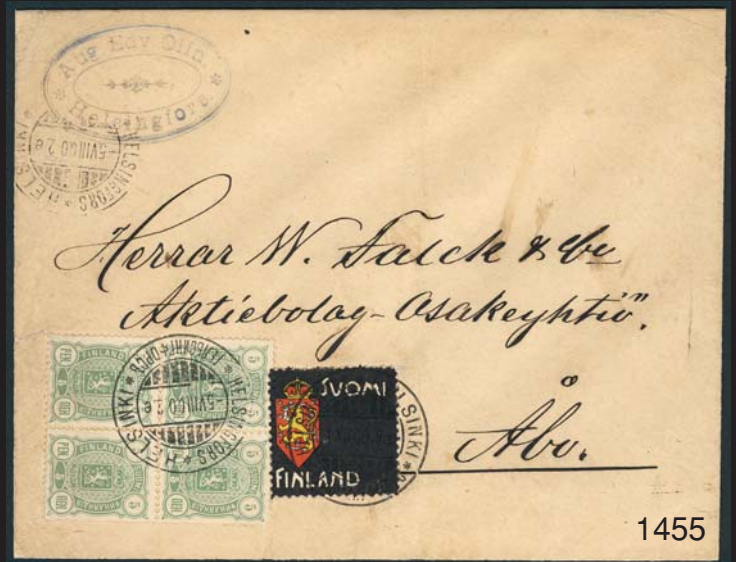 Aug Edv Olin.
Helsingfors
HELSINKI * HELSINGFORS *
5 VIII 00 2. e
Herrar W. Falck & Co
Aktiebolag-Osakeyhtiö",
Åbo.
PEN FINLAND 5
HELSINKI * HELSINGFORS *
5 VIII 00 2. e
SUOMI
FINLAND
1455